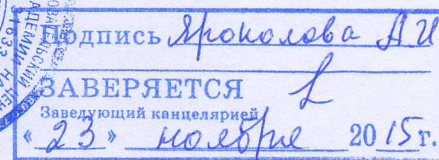 Подпись Яроколова А И
ЗАВЕРЯЕТСЯ
Заведующий канцелярией
«23» ноября 2015 г.